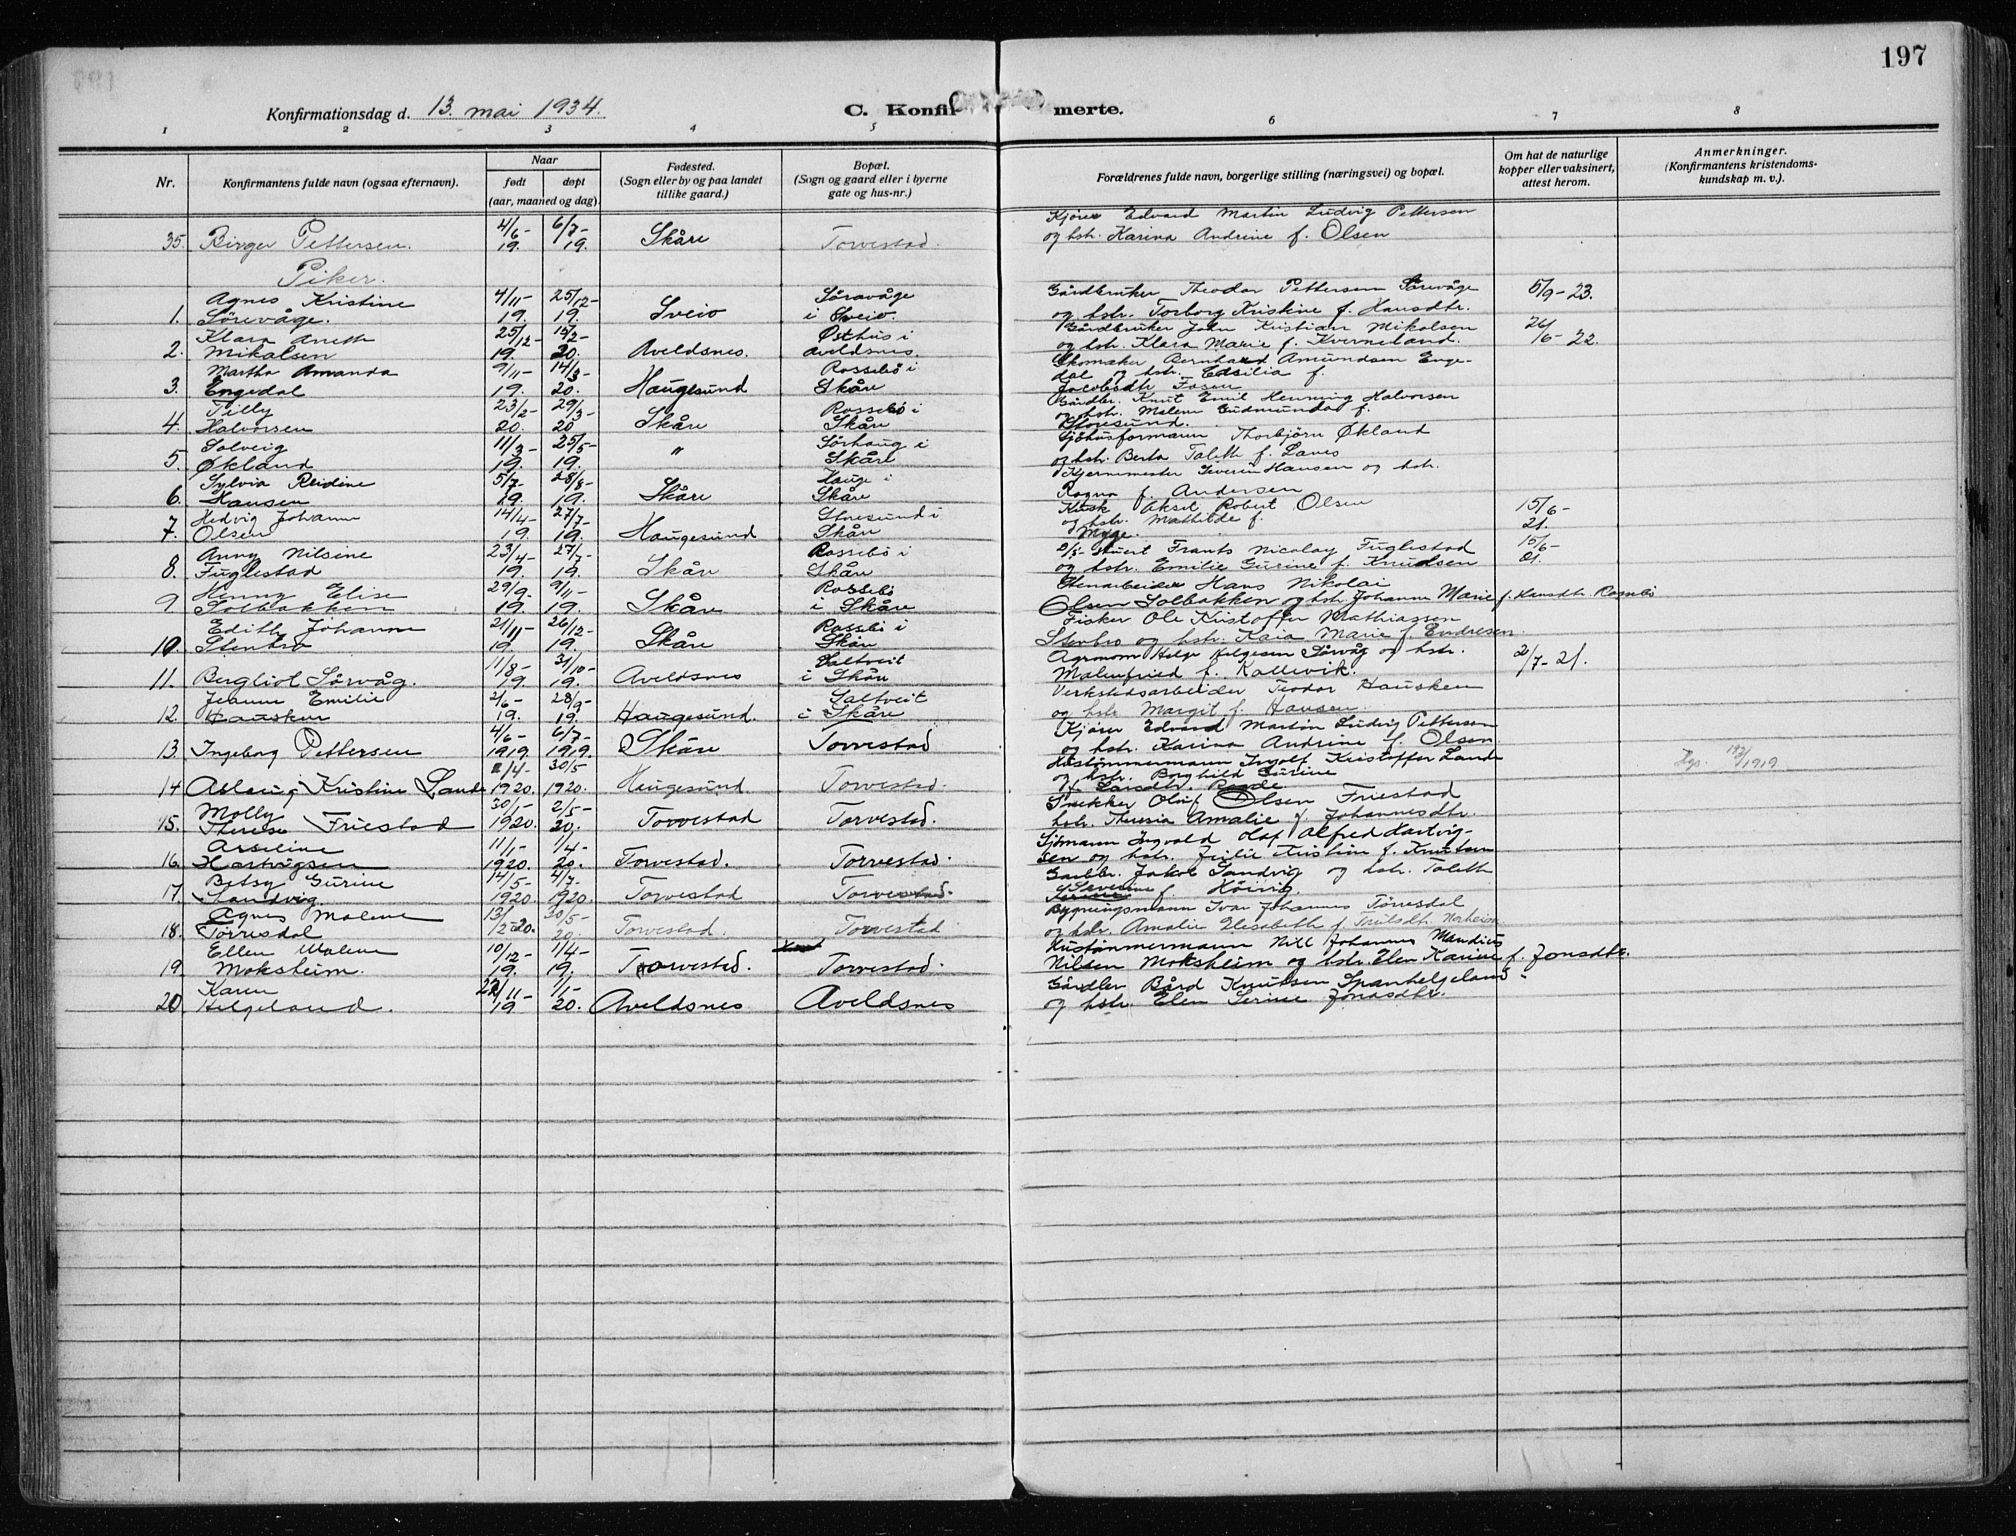 197
Konfirmationsdag d. 13. mai 1934.
C. Konfir merte.
1 2 3 4 5 6 7 8
Nr. Konfirmantens fulde navn (ogsaa efternavn). Naar født døpt (aar, maaned og dag). Fødested. (Sogn eller by og paa landet tillike gaard.) Bopæl. (Sogn og gaard eller i byerne gate og hus-nr.) Forældrenes fulde navn, borgerlige stilling (næringsvei) og bopæl. Om hat de naturlige kopper eller vaksinert, attest herom. Anmerkninger. (Konfirmantens kristendoms-kundskap m. v.).
4/6- 6/7- Kjører Edvard Martin Ludvig Pettersen
35. Birger Pettersen. 19. 19. Skåre Torvestad. og hstr. Karina Andrine f. Olsen
Piker.
Agnes Kristine 4/11- 25/12- Sørevåge Gårdbruker Theodor Pettersen Sørevåge 5/9-23.
1. Sørevåge. 19. 19. Sveio i Sveio. og hstr. Torborg Kristine f. Hansdtr.
Klara Aneth 25/12- 15/2- Østhus i Gårdbruker John Kristian Mikalsen 26/
2. Mikalsen 19. 20. Aveldsnes. aveldsnes. og hstr. Klara Marie f. Kverneland. 6-22.
Martha Amanda 9/11- 14/3- Rossebö i Skomaker Bernhard Amundsen Enge-
3. Engedal 19. 20. Haugesund Skåre dal og hstr. Edsilia f.
Jacobsdtr Fosen
Tilly 23/2- 29/3- Rossebö i Gårdbr. Knut Emil Henning Halvorsen
4. Halvorsen 20. 20 Skåre Skåre og hstr. Malene Gudmunda f.
Storesund.
Solveig 11/3- 25/5- Sörhaug i Sjöhusformann Thorbjörn Økland
5. Økland 19. 19. " Skåre og hstr. Berta Taleth f. Lanes
Sylvia Reidine 5/7- 28/8- Hauge i Kjernemester Severin Hansen og hstr.
6. Hansen 19. 19. Skåre Skåre Ragna f. Andersen
Hedvig Johanne 14/4- 27/7- Storesund i Kusk Aksel Robert Olsen 15/6-
7. Olsen 19. 19. Haugesund Skåre og hstr. Mathilde f. 21.
Myge.
Anny Nilsine 23/4- 27/7- Rossebö i Stuert Frants Nicolay Fuglestad 15/6-
8. Fuglestad 19. 19. Skåre Skåre og hstr. Emilie Gurine f. Knudsen 21.
Henny Elise 29/9- 9/11- Rossebö Stenarbeider Hans Nikolai
9. Solbakken 19. 19. Skåre i Skåre Olsen Solbakken og hstr. Johanne Marie f. Hansdtr.
Edith Johanne 21/11- 26/12- Rossebö i Fisker Ole Kristoffer Mathiassen
10. Stenbro 19. 19. Skåre Skåre Stenbro og hstr. Kaia Marie f. Endresen
11/8- 31/10- Saltveit Agronom Helge Helgesen Sørvåg og hstr. 2/7-21.
11. Bergliot Sørvåg. 19. 19. Aveldsnes i Skåre Malenfried f. Kallevik.
Jeanne Emilie 2/6- 28/9- Saltveit Verkstedsarbeider Teodor Hausken
12. Hausken 19. 19. Haugesund. i Skåre og hstr Margit f. Hansen
4/6- 6/7- Kjører Edvard Martin Ludvig Pettersen
13. Ingeborg Pettersen 1919. 1919. Skåre Torvestad og hstr. Karina Andrine f. Olsen.
/4- 30/5 Hustømmermann Ingolf Kristoffer Lande
14 Aslaug Kristine Lande 1920. 1920. Haugesund Torvestad. og hstr. Borghild Gurine
f. Larsdtr. Roede
Molly 30/1- 2/5- Snekker Oluf Olsen Friestad
15. Therese Friestad 1920. 20. Torvestad Torvestad. hstr. Theresia Amalie f. Johannesdtr.
Arseline 11/1- 1/4- Sjömann Ingvald Olaf Alfred Hartvig-
16. Hartvigsen 1920. 20. Torvestad. Torvestad. sen og hstr. Julie Kristine f. Knutsen
Betsy Gurine 14/5- 4/7- Gardbr. Jakob Sandvig og hstr. Taleth
17. Sandvig. 1920. 1920. Torvestad Torvestad. Severine f. Höivig.
Agnes Malene 13/ 30/5- Bygningsmann Ivar Johannes Tørresdal
18. Tørresdal 2-20. 20. Torvestad. Torvestad og hstr. Amalie Elisabeth f.
Ellen Malene 10/12- 1/4- Hustømmermann Nill Johannes Mandius
19. Moksheim. 19. 19. Torvestad. Torvestad. Nilsen Moksheim og hstr. Elen Karine f. Jonsdtr.
Karen 22/11- 1/1- Gårdbr Bård Knutsen Spanhelgeland
20. Helgeland. 19 20. Aveldsnes Aveldsnes og hstr. Elen Serine Jonasdtr.